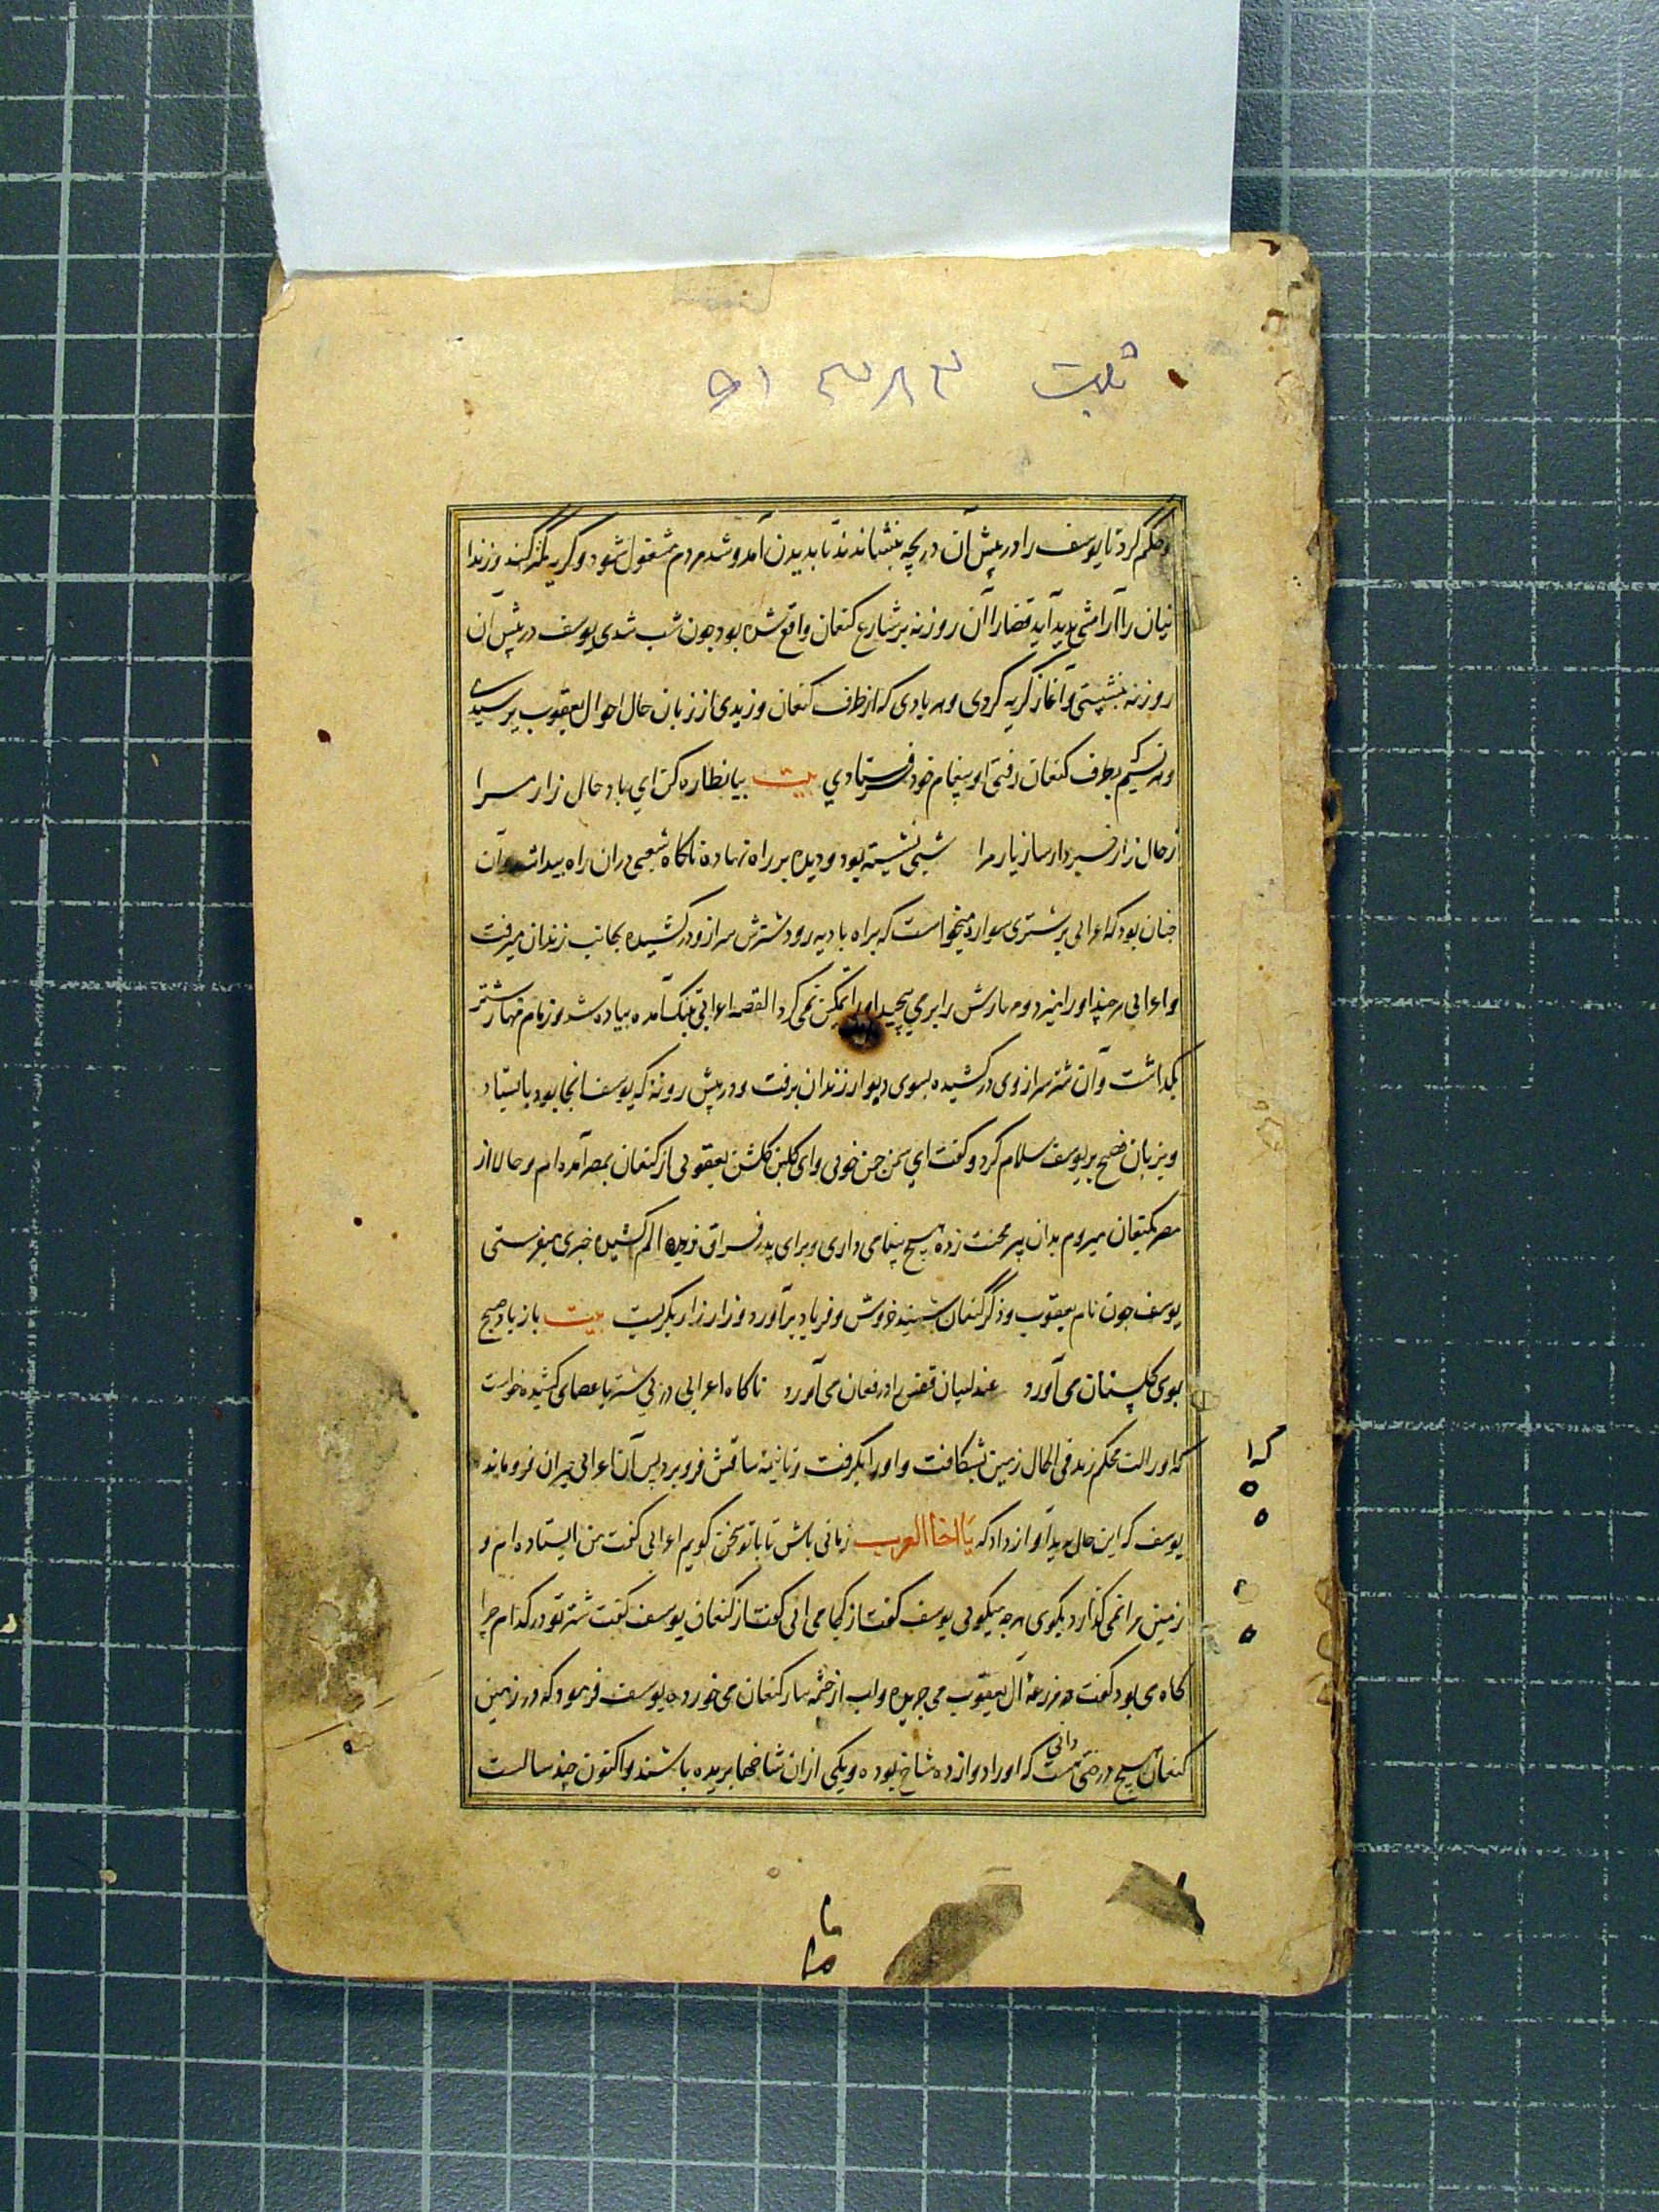 ثبت ۵۱۳۸۳
و حکم کرد تا یوسف را در پیش آن دریچه بنشاندند تا بدیدن آمد و شد مردم مشغول شود و گریه کمتر کند و زندا
نیان را آرامشی پدید آید قضا را آن روزنه بر شارع کنعان واقع شده بود چون شب شدی یوسف در پیش آن
روزنه بنشستی و آغاز گریه کردی و هر بادی که از طرف کنعان وزیدی از زبان حال احوال یعقوب پرسیدی
و هر نسیم بطرف کنعان رفتی او پیغام خود فرستادی بیت بیا نظاره کن ای باد حال زار مرا
ز حال زار خبردار ساز یار مرا شبی نشسته بود و دیده بر راه نهاده ناکاه شبحی دران راه پیدا شد و آن
چنان بود که اعرابی بر شتری سوار میخواست که براه بادیه رود شترش سر ازو در کشیده بجانب زندان میرفت
و اعرابی هر چند او را میزد و مهارش را برمی پیچید او را تمکین نمی کرد القصه اعرابی بتنک آمده پیاده شد و زمام مهار شتر
بگذاشت و آن شتر سر از وی در کشیده بسوی دیوار زندان برفت و در پیش روزنه که یوسف انجا بود بایستاد
و بزبان فصیح بر یوسف سلام کرد و گفت ای سمن چمن خوبی و ای گلبن گلشن یعقوبی از کنعان بمصر آمده ام و حالا از
مصر بکنعان میروم بدان پیر محنت زده هیچ پیغامی داری و برای پدر فراق دیده الم کشیده خبری میفرستی
یوسف چون نام یعقوب و ذکر کنعان شنید خروش و فریاد برآورد و زار زار بگریست بیت باز باد صبح
بوی گلستان می آورد عندلیبان قفس را در فغان می آورد ناکاه اعرابی در پی شتر با عصای کشیده خواست
که او را لت محکم زند فی الحال زمین بشکافت و او را بگرفت و تا نیمه ساقش فرو برد پس آن اعرابی حیران فرو ماند
یوسف که این حال بدید آواز داد که یا اخا العرب زمانی باش تا با تو سخن گویم اعرابی گفت من ایستاده ام و
زمین مرا نمی گذارد بگوی هر چه میگویی یوسف گفت از کجا می آئی گفت از کنعان یوسف گفت شتر تو در کدام چرا
گاه می بود گفت در مزرعه آل یعقوب می چریده و آب از چشمه سار کنعان می خورده یوسف فرمود که در زمین
کنعان هیچ درختی دانی هست که او را دوازده شاخ بوده و یکی از ان شاخها بریده باشند و اکنون چند سالست